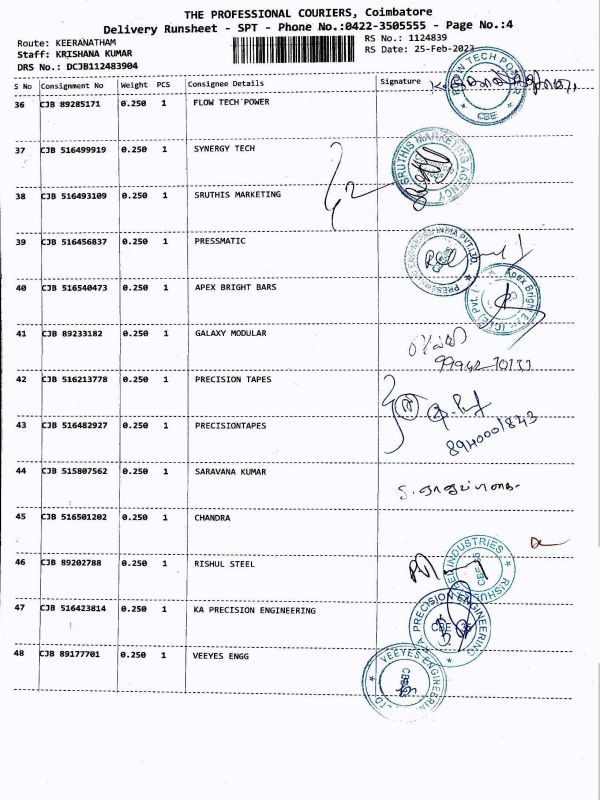 THE PROFESSIONAL COURIERS, Coimbatore
Delivery Runsheet - SPT - Phone No.:0422-3505555 - Page No.:4
Route: KEERANATHAM
RS No.: 1124839
Staff: KRISHANA KUMAR
RS Date: 25-Feb-2023
DRS No.: DCJB112483904
S No Consignment No Weight PCS Consignee Details Signature
36 CJB 89285171 0.250 1 FLOW TECH POWER
FLOW TECH POWER
CBE
37 CJB 516499919 0.250 1 SYNERGY TECH
SRUTHIS MARKETING AGENCY
38 CJB 516493109 0.250 1 SRUTHIS MARKETING
2
39 CJB 516456837 0.250 1 PRESSMATIC
40 CJB 516540473 0.250 1 APEX BRIGHT BARS
Apex Bright
41 CJB 89233182 0.250 1 GALAXY MODULAR
42 CJB 516213778 0.250 1 PRECISION TAPES
43 CJB 516482927 0.250 1 PRECISIONTAPES
8940001843
44 CJB 515807562 0.250 1 SARAVANA KUMAR
45 CJB 516501202 0.250 1 CHANDRA
46 CJB 89202788 0.250 1 RISHUL STEEL
INDUSTRIES
47 CJB 516423814 0.250 1 KA PRECISION ENGINEERING
K.A. PRECISION ENGINEERING
CBE-35
48 CJB 89177701 0.250 1 VEEYES ENGG
VEEYES ENGINEERING